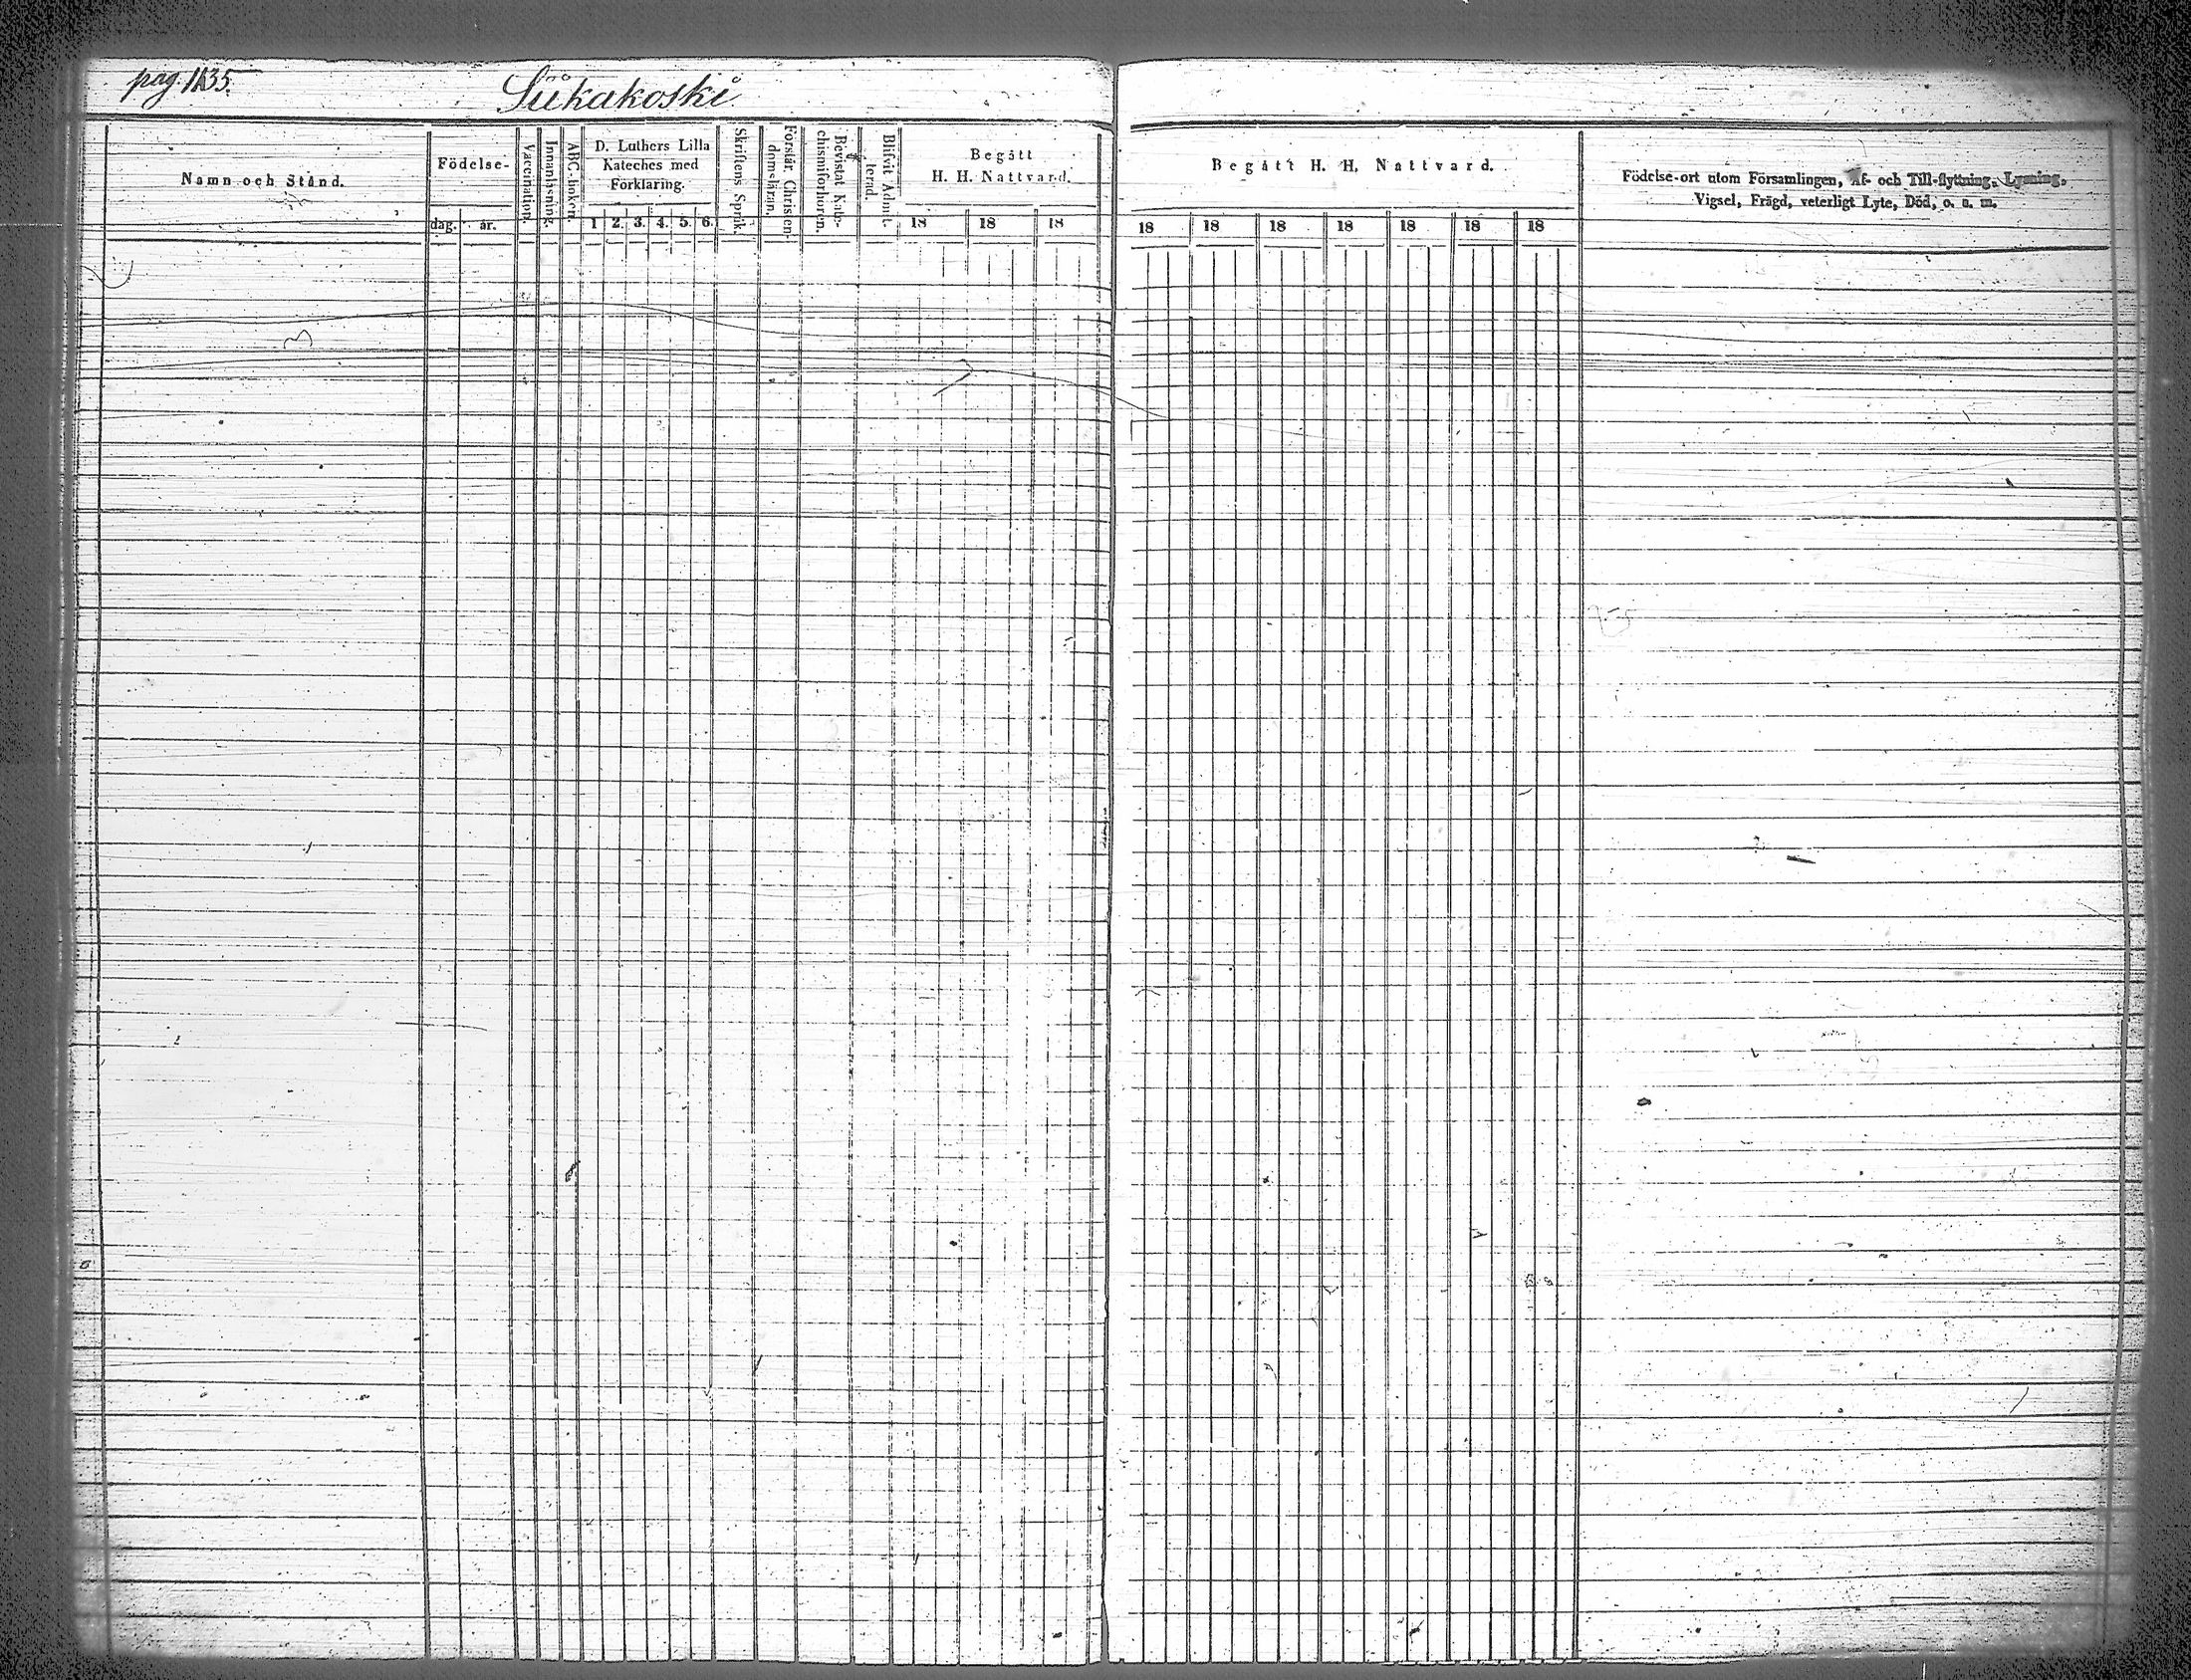 pag. 1135.
Siikakoski
Namn och Stånd.
Födelse-
dag. år.
Vaccination.
Innanläsning.
ABC-boken.
D. Luthers Lilla
Kateches med
Förklaring.
1 2. 3. 4. 5. 6.
Skriftens Språk.
Förstår Christen-
domsläran.
Bevistat Kate-
chismiförhören.
Blifvit Admit-
terad.
Begått
H. H. Nattvard.
18 18 18
Begått H. H. Nattvard.
18 18 18 18 18 18 18
Födelse-ort utom Församlingen, Af- och Till-flyttning, Lysning,
Vigsel, Frägd, veterligt Lyte, Död, o. a. m.